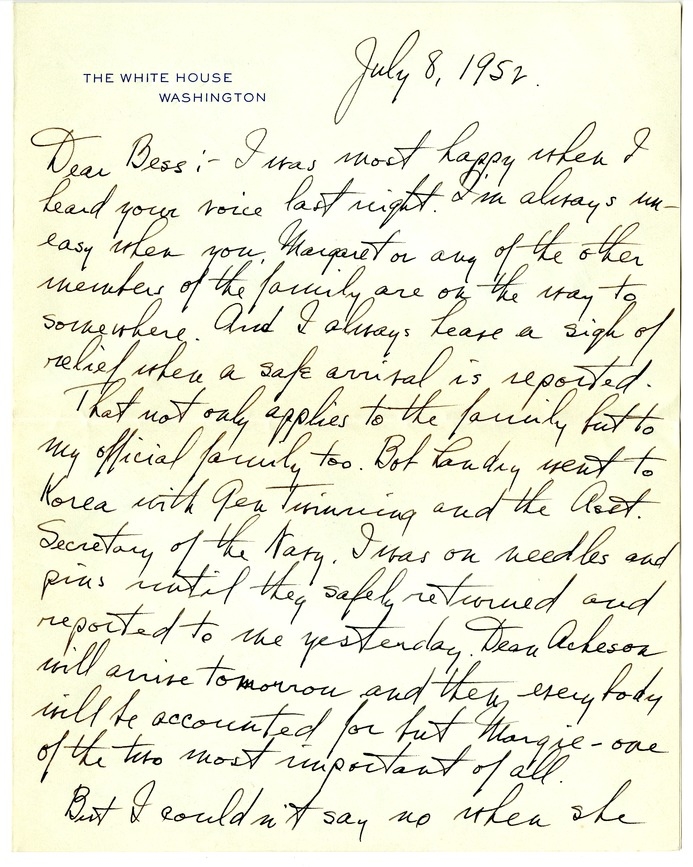 THE WHITE HOUSE
WASHINGTON
July 8, 1952.
Dear Bess:- I was most happy when I
heard your voice last night. I'm always un-
easy when you, Margaret or any of the other
members of the family are on the way to
somewhere. And I always heave a sigh of
relief when a safe arrival is reported.
That not only applies to the family but to
my official family too. Bob Landry went to
Korea with Gen Twinning and the Asst.
Secretary of the Navy. I was on needles and
pins until they safely returned and
reported to me yesterday. Dean Acheson
will arrive tomorrow and then everybody
will be accounted for but Margie - one
of the two most important of all.
But I couldn't say no when she